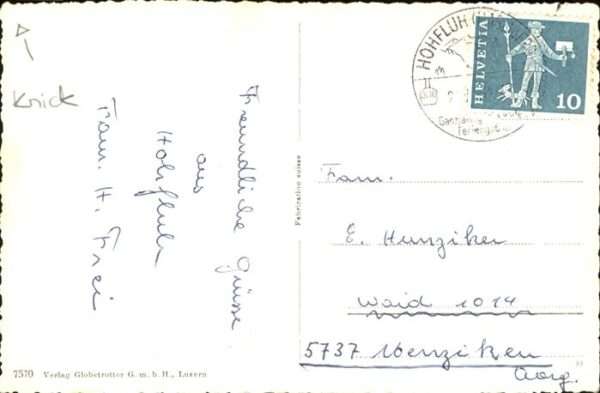 Knick
Freundliche Grüsse
aus
Hohfluh
Fam. H. Frei
7570 Verlag Globetrotter G. m. b. H., Luzern
Fabrication suisse
HOHFLUH
HELVETIA
10
Fam.
E. Hunziker
Waid 1014
5737 Menziken
Aarg.